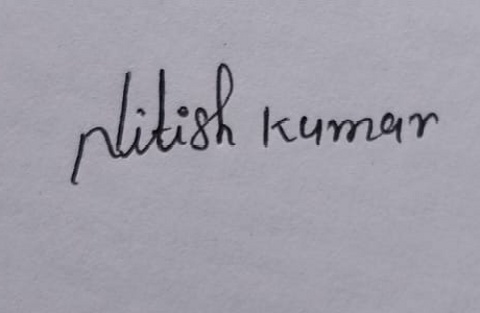 Nitish kumar